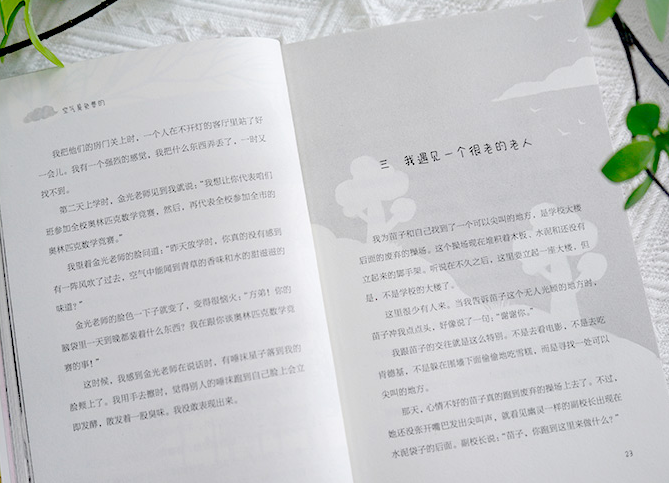 空气是免费的
我把他们的房门关上时，一个人在不开灯的客厅里站了好
一会儿。我有一个强烈的感觉，我把什么东西弄丢了，一时又
找不到。
第二天上学时，金光老师见到我就说：“我想让你代表咱们
班参加全校奥林匹克数学竞赛，然后，再代表全校参加全市的
奥林匹克数学竞赛。”
我望着金光老师的脸问道：“昨天放学时，你真的没有感到
有一阵风吹了过去，空气中能闻到青草的香味和水的甜滋滋的
味道？”
金光老师的脸色一下子就变了，变得很恼火：“方弟！你的
脑袋里一天到晚都装着什么东西？我在跟你谈奥林匹克数学竞
赛的事！”
这时候，我感到金光老师在说话时，有唾沫星子落到我的
脸颊上了。我用手去擦时，觉得别人的唾沫跑到自己脸上会立
即发酵，散发着一股臭味。我没敢表现出来。
三 我遇见一个很老的老人
我为苗子和自己找到了一个可以尖叫的地方，是学校大楼
后面的废弃的操场。这个操场现在堆积着木板、水泥和还没有
立起来的脚手架。听说在不久之后，这里要立起一座大楼，但
是，不是学校的大楼了。
这里很少有人来。当我告诉苗子这个无人光顾的地方时，
苗子冲我点点头，好像说了一句：“谢谢你。”
我跟苗子的交往就是这么特别。不是去看电影，不是去吃
肯德基，不是躲在围墙下面偷偷地吃雪糕，而是寻找一处可以
尖叫的地方。
那天，心情不好的苗子真的跑到废弃的操场上去了。不过，
她还没张开嘴巴发出尖叫声，就看见幽灵一样的副校长出现在
水泥袋子的后面。副校长说：“苗子，你跑到这里来做什么？”
23